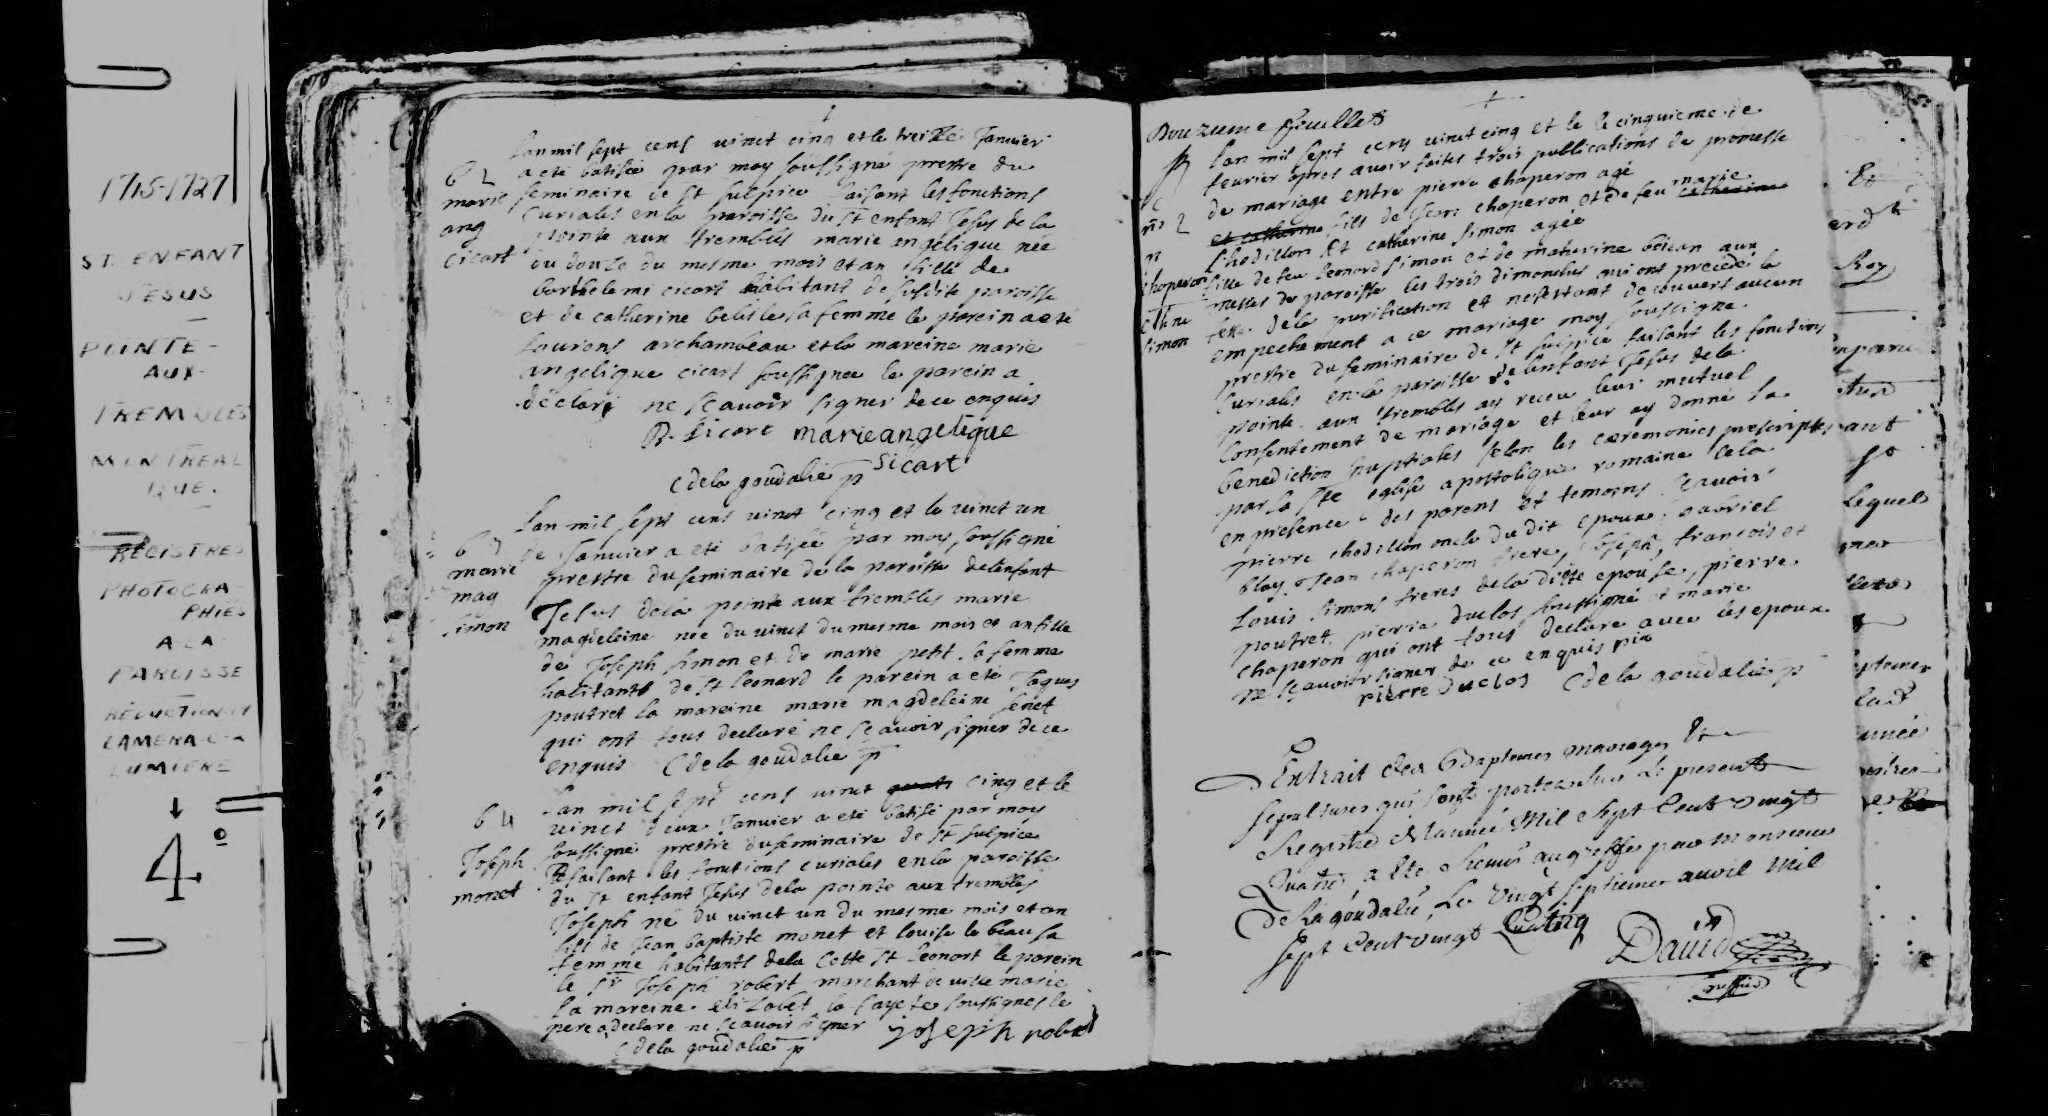 1715-1727
ST. ENFANT
JESUS
POINTE-
AUX-
TREMBLES
MONTREAL
QUE.
REGISTRES
PHOTOGRA-
PHIES
A LA
PAROISSE
REDUCTION
CAMERA
LUMIERE
4º
Lan mil sept cens vinct cinq et le treize Janvier
a eté batisée par moy soussigné prestre du
seminaire de st sulpice faisant les fonctions
Curiales en la paroisse du st enfant Jesus de la
pointe aux trembles marie angelique née
du douze du mesme mois et an fille de
barthelemi cicart habitant de susdite paroisse
et de catherine belisle sa femme le parein a eté
Laurens archambeau et la mareine marie
angelique cicart soussignée le parein a
déclaré ne sçavoir signer de ce enquis
62
marie
ang
cicart
B. Sicart marieangelique
Sicart
C de la goudalie p
Lan mil sept cens vinct cinq et le vinct un
de Janvier a eté batisée par moy soussigné
prestre du seminaire de la paroisse de lenfant
Jesus de la pointe aux trembles marie
magdeleine née du vinct du mesme mois et an fille
de Joseph simon et de marie petit sa femme
habitants de st leonard le parein a eté Jaques
poutret la mareine marie magdeleine senet
qui ont tous declaré ne sçavoir signer de ce
enquis C de la goudalie p
63
marie
mag
simon
Lan mil sept cens vinct cinq et le
vinct deux Janvier a eté batisé par moy
soussigné prestre du seminaire de st sulpice
faisant les fonctions curiales en la paroisse
du st enfant Jesus de la pointe aux trembles
Joseph né du vinct un du mesme mois et an
fils de Jean baptiste monet et louise le beau sa
femme habitants de la Coste st leonart le parein
le sr Joseph robert marchant de ville marie
la mareine elizabet la soussignes le
pere a declaré ne sçavoir signer
C de la goudalie p joseph robert
64
Joseph
monet
Douzieme feuillet
Lan mil sept cens vinct cinq et le le cinquieme de
fevrier apres avoir faites trois publications de promesse
de mariage entre pierre chaperon agé
et catherine fils de Jean chaperon et de feu marie catherine
chodillon et catherine simon agée
fille de feu leonard simon et de maturine aux
messes de paroisse les trois dimanches qui ont precédé la
feste de la purification et nestant decouvert aucun
empechement a ce mariage moy soussigné
prestre du seminaire de st sulpice faisant les fonctions
Curiales en la paroisse de lenfant Jesus de la
pointe aux trembles ay receu leur mutuel
Consentement de mariage et leur ay donné la
benediction nuptiales selon les ceremonies prescriptes
par la ste eglise apostolique romaine cela
en presence des parens et temoins sçavoir
pierre chodillon oncle du dit epoux gabriel
blay Jean chaperon frere, Joseph, francois et
Louis simons freres de la ditte epouse, pierre
poutret, pierre duclos soussigné et marie
chaperon qui ont tous declaré avec les epoux
ne sçavoir signer de ce enquis
pierre duclos C de la goudalie p
m 2
chaperon
simon
Extrait des Baptemes mariages &
sepultures qui sont portés sur le present
Registre de Lannée Mil Sept Cent vingt
quatre a eté remis au greffe par Monsieur
De La goudalie, Le vingt septieme avril Mil
Sept Cent vingt
David
Roy
Lequel